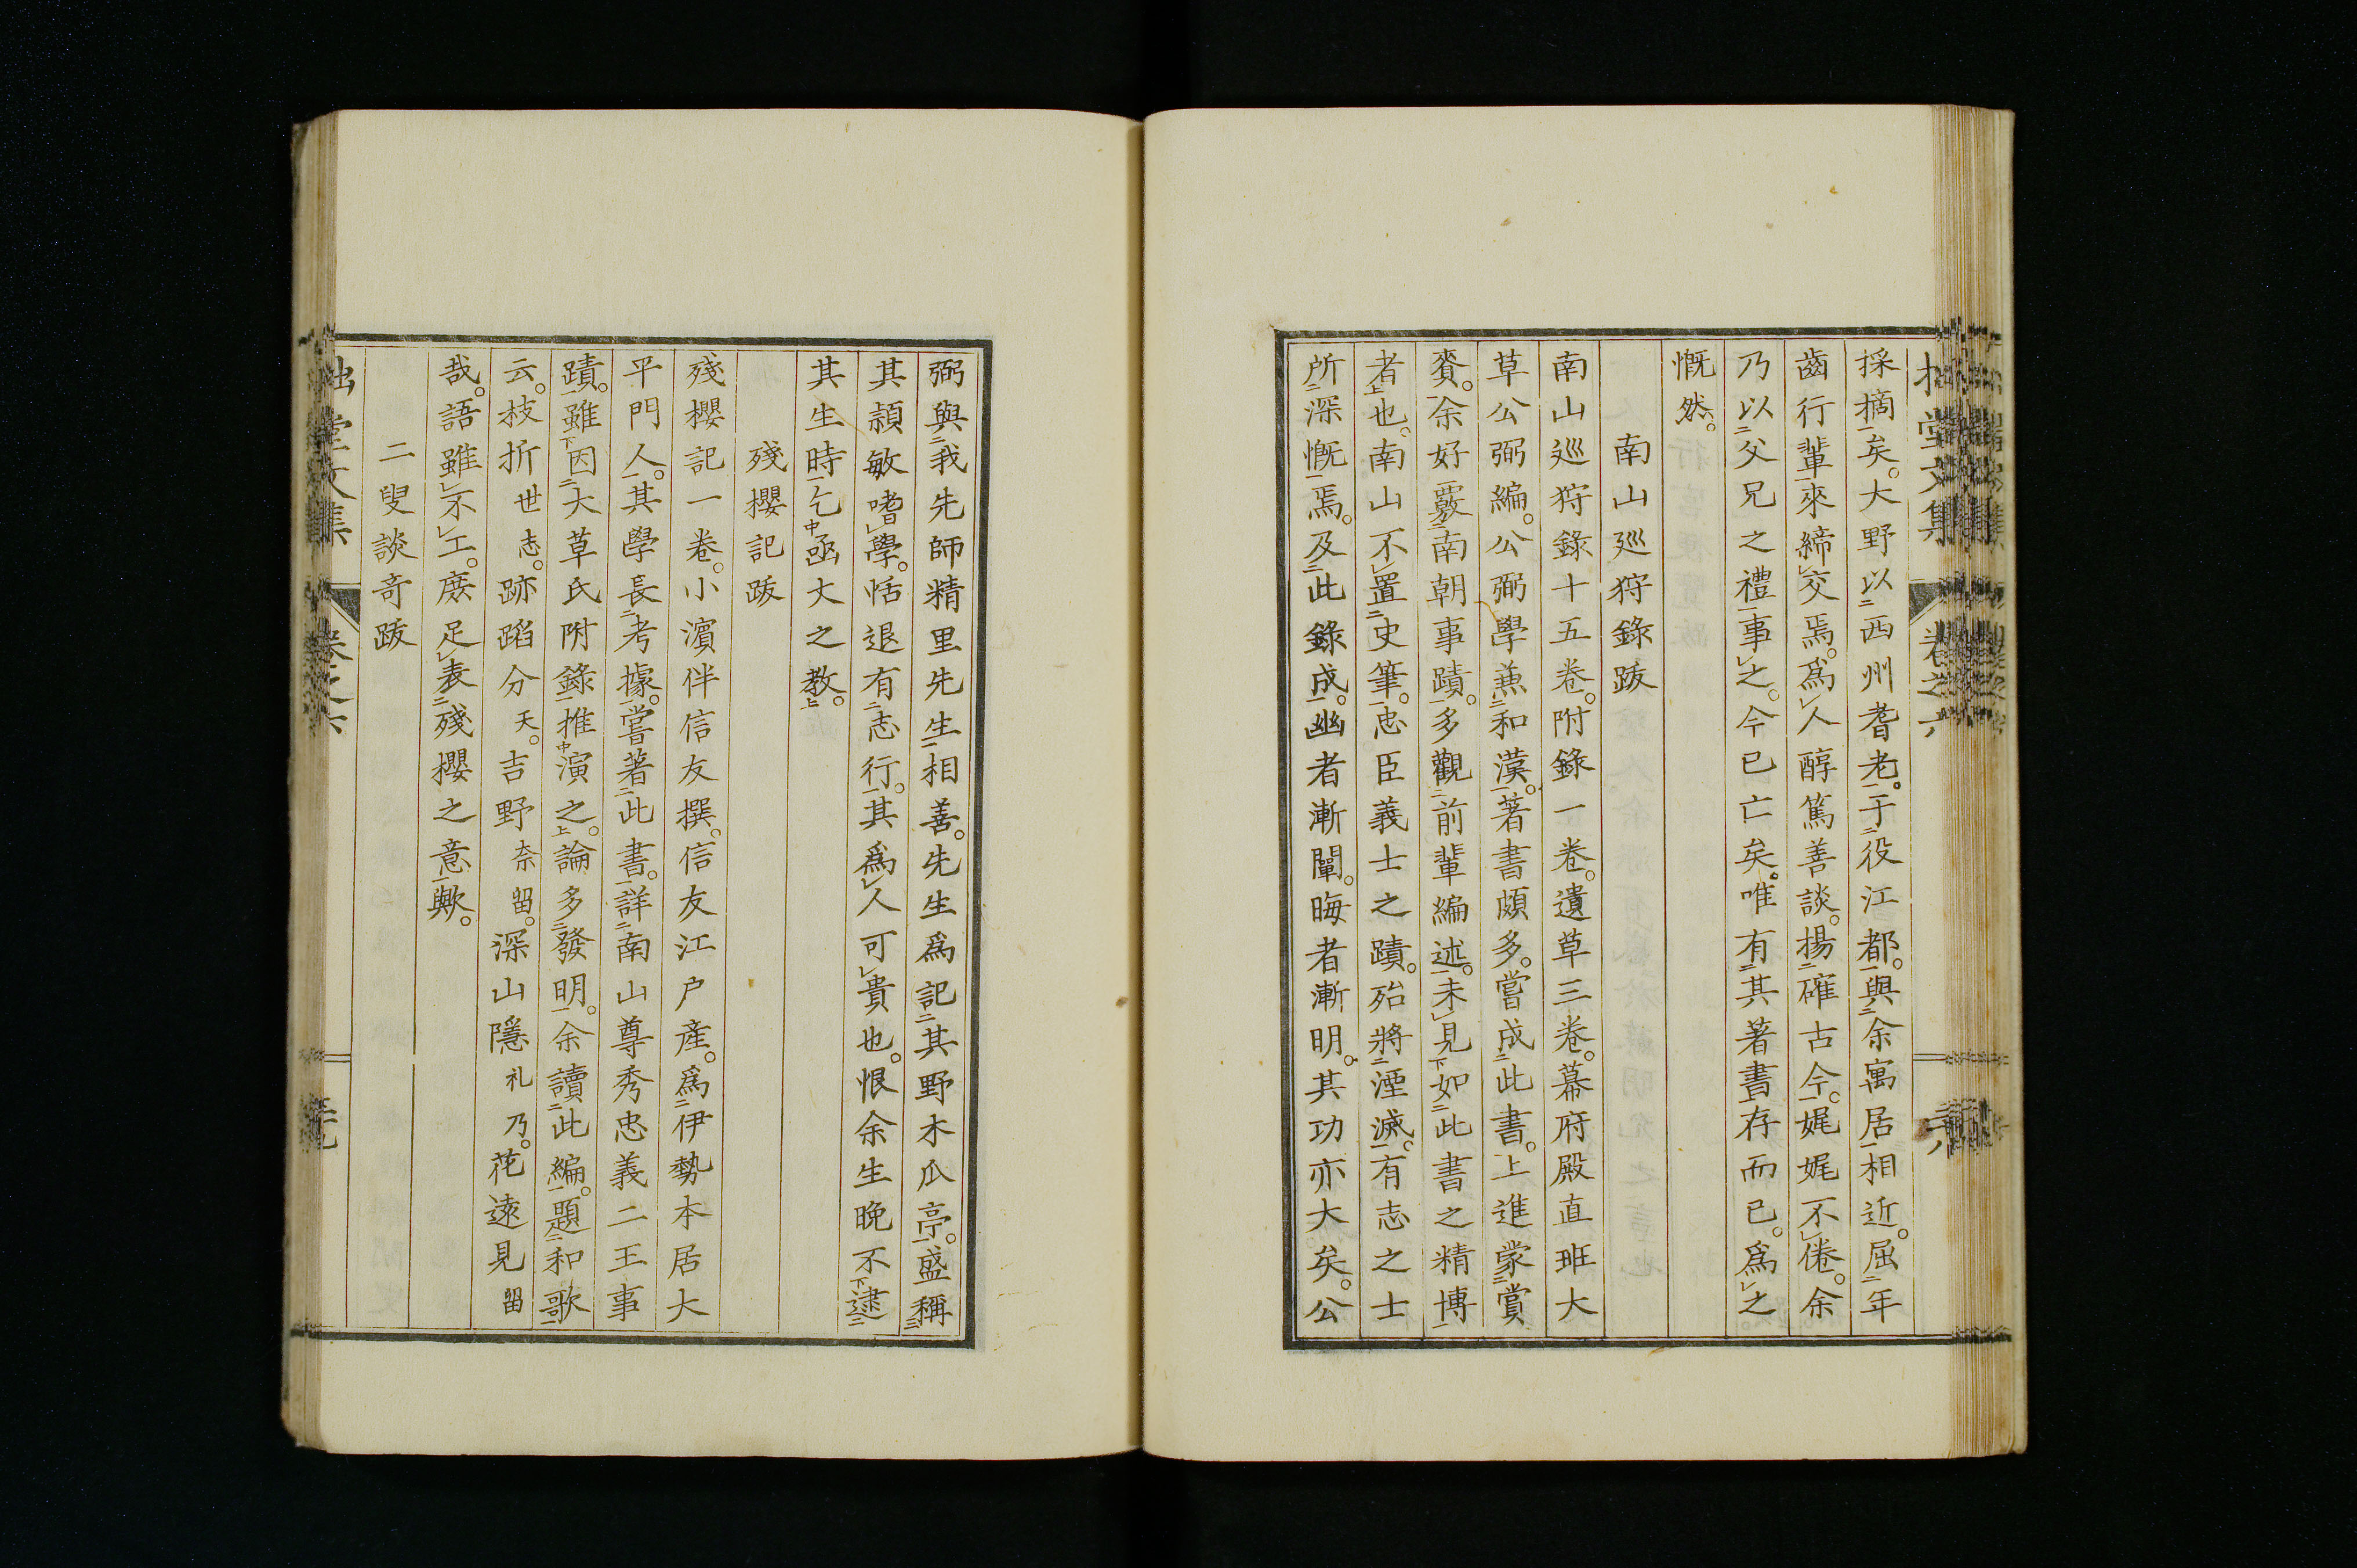 拙堂文集 卷之六 二十八
採摘矣。大野以西州耆老。于役江都。與余寓居相近。屈年
齒行輩來締交焉。爲人醇篤善談。揚確古今。娓娓不倦。余
乃以父兄之禮事之。今已亡矣。唯有其著書存而已。爲之
慨然。
南山廵狩錄跋
南山巡狩錄十五卷。附錄一卷。遺草三卷。幕府殿直班大
草公弼編。公弼學兼和漢。著書頗多。嘗成此書。上進蒙賞
賚。余好覈南朝事蹟。多觀前輩編述。未見如此書之精博
者也。南山不置史筆。忠臣義士之蹟。殆將湮滅。有志之士
所深慨焉。及此錄成。幽者漸闡。晦者漸明。其功亦大矣。公
弼與我先師精里先生相善。先生爲記其野木瓜亭。盛稱
其穎敏嗜學。恬退有志行。其爲人可貴也。恨余生晚不逮
其生時乞亟丈之教。
殘櫻記跋
殘櫻記一卷。小濵伴信友撰。信友江户産。爲伊勢本居大
平門人。其學長考據。嘗著此書。詳南山尊秀忠義二王事
蹟。雖因大草氏附錄推演之。論多發明。余讀此編。題和歌
云。枝折世志。跡蹈分天。吉野奈留。深山隱礼乃。花遠見留
哉。語雖不工。庶足表殘櫻之意歟。
二叟談奇跋
拙堂文集 卷之六 二十九